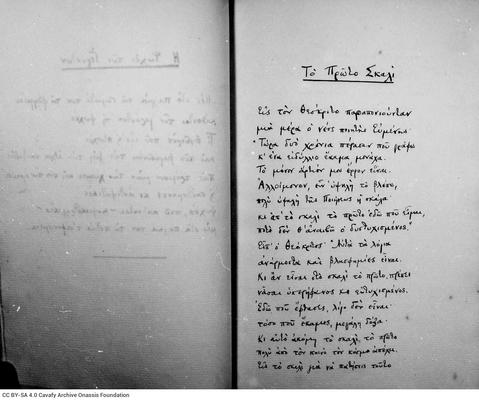 Τὸ Πρῶτο Σκαλὶ
Εἰς τὸν Θεόκριτο παραπονιοῦνταν
μιὰ μέρα ὁ νέος ποιητὴς Εὐμένης·
«Τώρα δυὸ χρόνια πέρασαν ποὺ γράφω
κ' ἕνα εἰδύλλιο ἔκαμα μονάχα.
Τὸ μόνον ἄρτιόν μου ἔργον εἶναι.
Ἀλλοίμονον, εἶν' ὑψηλὴ τὸ βλέπω,
πολὺ ὑψηλὴ τῆς Ποιήσεως ἡ σκάλα·
κι ἀπ' τὸ σκαλὶ τὸ πρῶτο ἐδῶ ποὺ εἶμαι,
ποτὲ δὲν θ' ἀναιβῶ ὁ δυστυχισμένος.»
Εἶπ' ὁ Θεόκριτος· «Αὐτὰ τὰ λόγια
ἀνάρμοστα καὶ βλασφημίες εἶναι.
Κι ἂν εἶσαι στὸ σκαλὶ τὸ πρῶτο, πρέπει
νἆσαι ὑπερήφανος κ' εὐτυχισμένος.
Ἐδῶ ποὺ ἔφθασες, λίγο δὲν εἶναι·
τόσο ποὺ ἔκαμες, μεγάλη δόξα.
Κι αὐτὸ ἀκόμη τὸ σκαλὶ τὸ πρῶτο
πολὺ ἀπὸ τὸν κοινὸ τὸν κόσμο ἀπέχει.
Εἰς τὸ σκαλὶ γιὰ νὰ πατήσεις τοῦτο
CC BY-SA 4.0 Cavafy Archive Onassis Foundation